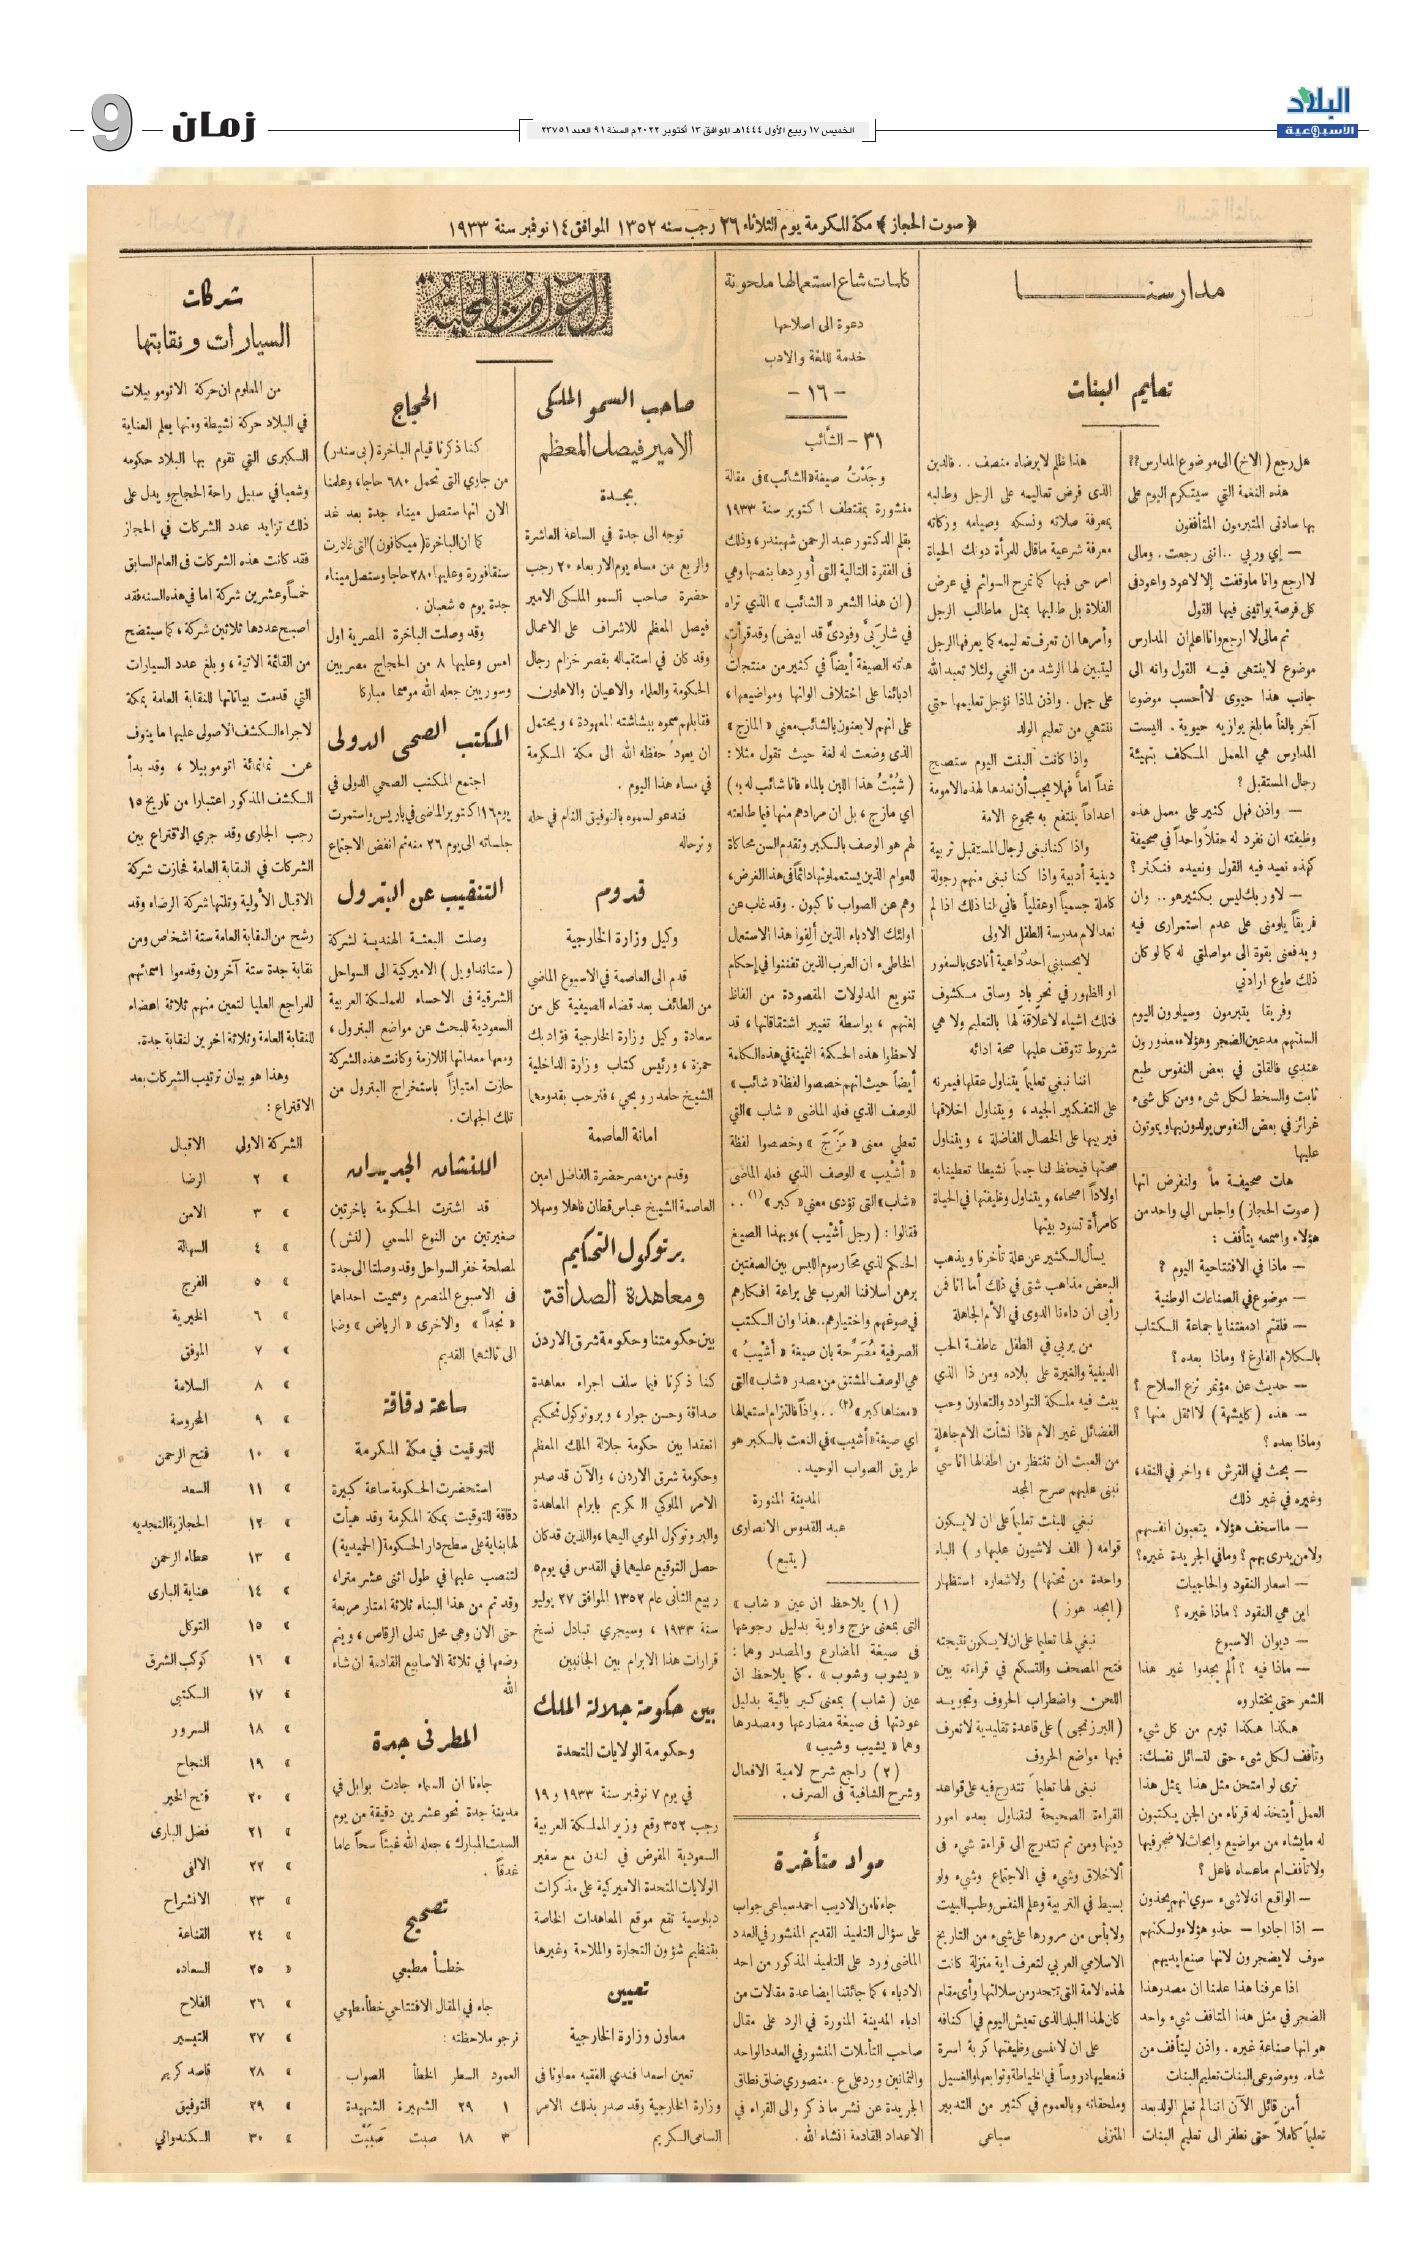 البلاد
الأسبوعية
الخميس ١٧ ربيع الأول ١٤٤٤هـ الموافق ١٣ أكتوبر ٢٠٢٢م السنة ٩١ العدد ٢٣٧٥١
زمان
9
﴿ صوت الحجاز ﴾ مكة المكرمة يوم الثلاثاء ٢٦ رجب سنه ١٣٥٢ الموافق ١٤ نوفمبر سنة ١٩٣٣
مدارسنا
تعليم البنات
هل رجع ( الاخ ) الى موضوع المدارس ؟؟
هذه النغمة التي سيتكرم اليوم على
بها سادتى المتبرمون المتأففون
— إي وربي .. اننى رجعت . ومالى
لا ارجع وانا ما وقفت إلا لاعود واعود فى
كل فرصة يواتينى فيها القول
ثم مالى لا ارجع وانا اعلم ان المدارس
موضوع لا ينتهى فيه القول وانه الى
جانب هذا حيوى لا أحسب موضوعا
آخر بالغاً ما بلغ يوازيه حيوية . اليست
المدارس هي المعمل المكلف بتهيئة
رجال المستقبل ؟
— واذن فهل كثير على معمل هذه
وظيفته ان نفرد له حقلاً واحداً في صحيفة
كهذه نعيد فيه القول ونعيده فنكثر ؟
— لا وربك ليس بكثير هو .. وان
فريقاً يلومنى على عدم استمرارى فيه
ويدفعنى بقوة الى مواصلتي له كما لو كان
ذلك طوع ارادتي
وفريقا يتبرمون وسيلوون اليوم
السنتهم مدعين الضجر وهؤلاء معذورون
عندي فالقلق في بعض النفوس طبع
ثابت والسخط لكل شىء ومن كل شىء
غرائز في بعض النفوس يولدون بها ويموتون
عليها
هات صحيفة ما ولنفرض انها
( صوت الحجاز ) واجلس الى واحد من
هؤلاء واسمعه يتأفف :
— ماذا في الافتتاحية اليوم ؟
— موضوع في الصناعات الوطنية
— فلقتم ادمغتنا يا جماعة الكتاب
بالكلام الفارغ ؟ وماذا بعده ؟
— حديث عن مؤتمر نزع السلاح ؟
— هذه ( كليشهة ) لا اثقل منها ؟
وماذا بعده ؟
— بحث في القرش ، واخر في النقد،
وغيره في غير ذلك
— ما اسخف هؤلاء يتعبون انفسهم
ولا من يدرى بهم ؟ وما في الجريدة غيره ؟
— اسعار النقود والحاجيات
اين هي النقود ؟ ماذا غيره ؟
— ديوان الاسبوع
— ماذا فيه ؟ ألم يجدوا غير هذا
الشعر حتى يختاروه
هكذا هكذا تبرم من كل شيء
وتأفف لكل شىء حتى لتسائل نفسك:
ترى لو امتحن مثل هذا يمثل هذا
العمل أيتخذ له قرناء من الجن يكتبون
له ما يشاء من مواضيع وابحاث لا ضجر فيها
ولا تأفف ام ما عساه فاعل ؟
— الواقع انه لا شىء سوى انهم يحذون
— اذا اجادوا — حذو هؤلاء ولكنهم
سوف لا يضجرون لانها صنع ايديهم
اذا عرفنا هذا علمنا ان مصدر هذا
الضجر في مثل هذا المتأفف شيء واحد
هو انها صناعة غيره . واذن ليتأفف من
شاء. وموضوعى البنات تعليم البنات
أمن قائل الآن اننا لم نعلم الولد بعد
تعليماً كاملاً حتى نطفر الى تعليم البنات
هذا ظلم لا يرضاه منصف . . فالدين
الذى فرض تعاليمه على الرجل وطالبه
بمعرفة صلاته ونسكه وصيامه وزكاته
معرفة شرعية ما قال للمرأة دونك الحياة
امرحى فيها كما تمرح السوائم في عرض
الفلاة بل طالبها بمثل ما طالب الرجل
وأمرها ان تعرف تعاليمه كما يعرفها الرجل
ليتبين لها الرشد من الغي ولئلا تعبد الله
على جهل . واذن لماذا نؤجل تعليمها حتى
ننتهي من تعليم الولد
واذا كانت البنت اليوم ستصبح
غداً اماً فهلا يجب أن نعدها لهذه الامومة
اعداداً ينتفع به مجموع الامة
واذا كنا نبغى لرجال المستقبل تربية
دينية أدبية واذا كنا نبغى منهم رجولة
كاملة جسمياً او عقلياً فأنى لنا ذلك اذا لم
نعد الام مدرسة الطفل الاولى
لا يحسبنى احد داعية أنادى بالسفور
او الظهور في نحر باد وساق مكشوف
فتلك اشياء لا علاقة لها بالتعليم ولا هي
شروط تتوقف عليها صحة ادائه
اننا نبغي تعليماً يتناول عقلها فيمرنه
على التفكير الجيد ، ويتناول اخلاقها
فيربيها على الخصال الفاضلة ، ويتناول
صحتها فيحفظ لنا جسما نشيطا تعطينا به
اولاداً اصحاء، ويتناول وظيفتها في الحياة
كامرأة تسود بيتها
يسأل الكثير عن علة تأخرنا ويذهب
البعض مذاهب شتى في ذلك أما انا فمن
رأيى ان داءنا الدوى في الأم الجاهلة
من يربي في الطفل عاطفة الحب
الدينية والغيرة على بلاده ومن ذا الذي
يبث فيه ملكة التوادد والتعاون وحب
الفضائل غير الام فاذا نشأت الام جاهلة
من العبث ان تفتقر من اطفالها اناسيَّ
نبنى عليهم صرح المجد
نبغي للبنت تعليماً على ان لا يكون
قوامه ( الف لاشيون عليها و ) الباء
واحدة من تحتها ) ولا شعاره استظهار
( ابجد هوز )
نبغي لها تعليما على ان لا يكون نتيجته
فتح المصحف والتسكع في قراءته بين
اللحن واضطراب الحروف وتجويد
( البرزنجى ) على قاعدة تقليدية لا تعرف
فيها مواضع الحروف
نبغى لها تعليماً تتدرج فيه على قواعد
القراءة الصحيحة لتناول بعده امور
دينها ومن ثم تتدرج الى قراءة شىء فى
ألاخلاق وشيء في الاجتماع وشيء ولو
بسيط في التربية وعلم النفس وطب البيت
ولا بأس من مرورها على شىء من التاريخ
الاسلامى العربي لتعرف اية منزلة كانت
لهذه الامة التى تتحدر من سلالتها وأى مقام
كان لهذا البلد الذى تعيش اليوم في اكنافه
على ان لا ننسى وظيفتها كربة اسرة
فنعطيها دروساً في الخياطة وتوابعها والغسيل
وملحقاته وبالعموم في كثير من التدبير
المنزلى سباعي
كلمات شاع استعمالها ملحونة
دعوة الى اصلاحها
خدمة للغة والادب
- ١٦ -
٣١ - الشائب
وجَدْتُ صيغة «الشائب» فى مقالة
منشورة بمقتطف ١ كتوبر سنة ١٩٣٣
بقلم الدكتور عبد الرحمن شهبندر ، وذلك
فى الفقرة التالية التى أوردها بنصها وهي
( ان هذا الشعر « الشائب » الذي تراه
في شاربيَّ وفوديَّ قد ابيض ) وقد قرأت
هاته الصيغة أيضاً في كثير من منتجات
ادبائنا على اختلاف الوانها ومواضيعها ،
على انهم لا يعنون بالشائب معنى « المازج »
الذى وضعت له لغة حيث تقول مثلا :
( شُبْتُ هذا اللبن بالماء فانا شائب له به )
اي مازج ، بل ان مرادهم منها فيما طالعته
لهم هو الوصف بالكبر وتقدم السن محاكاة
للعوام الذين يستعملونها دائماً فى هذا الغرض ،
وهم عن الصواب ناكبون . وقد غاب عن
اولئك الادباء الذين ألفوا هذا الاستعمال
الخاطىء ان العرب الذين تفننوا في إحكام
تنويع المدلولات المقصودة من الفاظ
لغتهم ، بواسطة تغيير اشتقاقاتها ، قد
لاحظوا هذه الحكمة الثمينة في هذه الكلمة
أيضاً حيث انهم خصصوا لفظة « شائب »
للوصف الذي فعله الماضى « شاب » التي
تعطي معنى « مَزَجَ » وخصصوا لفظة
« أشْيب » للوصف الذي فعله الماضى
« شاب » التى تؤدى معنى « كبر »(١) . .
فقالوا : ( رجل أشْيب ) ، وبهذا الصيغ
الحكم لذي محَا رسوم اللبس بين الصفتين
برهن اسلافنا العرب على براعة افكارهم
في صوغهم واختيارهم . . هذا وان الكتب
الصرفية مُصَرِّحة بان صيغة « أشْيبُ »
هي الوصف المشتق من مصدر « شاب » التى
«معناها كبر»(٢) . . واذاً فالتزام استعمالها
اي صيغة « أشيب » في النعت بالكبر هو
طريق الصواب الوحيد .
المدينة المنورة
عبد القدوس الانصارى
( يتبع )
( ١ ) يلاحظ ان عين « شاب »
التى بمعنى مزج واوية بدليل رجوعها
فى صيغة المضارع والمصدر وهما :
« يشوب وشوب » . كما يلاحظ ان
عين ( شاب ) بمعنى كبر يائية بدليل
عودتها فى صيغة مضارعها ومصدرها
وهما « يشيب وشيب »
( ٢ ) راجع شرح لامية الافعال
وشرح الشافية فى الصرف .
مواد متأخرة
جاءنا من الاديب احمد سباعى جواب
على سؤال التلميذ القديم المنشور في العدد
الماضى ورد على التلميذ المذكور من احد
الادباء ، كما جائتنا ايضا عدة مقالات من
ادباء المدينة المنورة في الرد على مقال
صاحب التأملات المنشور في العدد الواحد
والثمانين ورد على ع . منصوري ضاق نطاق
الجريدة عن نشر ما ذكر والى القراء في
الاعداد القادمة انشاء الله .
الحوادث المحلية
صاحب السمو الملكى
الامير فيصل المعظم
بجدة
توجه الى جدة في الساعة العاشرة
والربع من مساء يوم الاربعاء ٢٠ رجب
حضرة صاحب السمو الملكى الامير
فيصل المعظم للاشراف على الاعمال
وقد كان في استقباله بقصر خزام رجال
الحكومة والعلماء والاعيان والاهلون
فقابلهم سموه ببشاشته المعهودة ، ويحتمل
ان يعود حفظه الله الى مكة المكرمة
في مساء هذا اليوم .
فندعو لسموه بالتوفيق التام في حله
وترحاله
قدوم
وكيل وزارة الخارجية
قدم الى العاصمة في الاسبوع الماضي
من الطائف بعد قضاء الصيفية كل من
سعادة وكيل وزارة الخارجية فؤاد بك
حمزة ، ورئيس كتاب وزارة الداخلية
الشيخ حامد رويحي ، فنرحب بقدومهما
امانة العاصمة
وقدم من مصر حضرة الفاضل امين
العاصمة الشيخ عباس قطان فاهلا وسهلا
برتوكول التحكيم
ومعاهدة الصداقة
بين حكومتنا وحكومة شرق الاردن
كنا ذكرنا فيما سلف اجراء معاهدة
صداقة وحسن جوار ، وبروتوكول تحكيم
انعقدا بين حكومة جلالة الملك المعظم
وحكومة شرق الاردن ، والآن قد صدر
الامر الملوكي الكريم بابرام المعاهدة
والبروتوكول المومي اليهما ، واللذين قد كان
حصل التوقيع عليهما في القدس في يوم ٥
ربيع الثانى عام ١٣٥٢ الموافق ٢٧ يوليو
سنة ١٩٣٣ ، وسيجري تبادل نسخ
قرارات هذا الابرام بين الجانبين
بين حكومة جلالة الملك
وحكومة الولايات المتحدة
في يوم ٧ نوفمبر سنة ١٩٣٣ و ١٩
رجب ٣٥٢ وقع وزير المملكة العربية
السعودية المفوض في لندن مع سفير
الولايات المتحدة الاميركية على مذكرات
دبلوسية تقع موقع المعاهدات الخاصة
بتنظيم شؤون التجارة والملاحة وغيرها
تعيين
معاون وزارة الخارجية
تعين اسعد افندي الفقيه معاونا فى
وزارة الخارجية وقد صدر بذلك الامر
السامى الكريم
الحجاج
كنا ذكرنا قيام الباخرة ( بى سندر )
من جاري التى تحمل ٦٨٠ حاجا، وعلمنا
الان انها ستصل ميناء جدة بعد غد
كما ان الباخرة ( ميكانون ) التى غادرت
سنقافورة وعليها ٢٨٠ حاجا وستصل ميناء
جدة يوم ٥ شعبان .
وقد وصلت الباخرة المصرية اول
امس وعليها ٨ من الحجاج مصريين
وسوريين جعله الله موسما مباركا
المكتب الصحى الدولى
اجتمع المكتب الصحي الدولى في
يوم ١٦ اكتوبر الماضى في باريس واستمرت
جلساته الى يوم ٢٦ منه ثم انفض الاجتماع
التنقيب عن البترول
وصلت البعثة الهندسية لشركة
( ستاندارويل ) الاميركية الى السواحل
الشرقية فى الاحساء للمملكة العربية
السعودية للبحث عن مواضع البترول ،
ومعها معداتها اللازمة وكانت هذه الشركة
حازت امتيازاً باستخراج البترول من
تلك الجهات .
اللنشان الجديدان
قد اشترت الحكومة باخرتين
صغيرتين من النوع المسمي ( لنش )
لمصلحة خفر السواحل وقد وصلتا الى جدة
فى الاسبوع المنصرم وسميت احداهما
« نجداً » والاخرى « الرياض » وضما
الى ثالثهما القديم
ساعة دقاقة
للتوقيت في مكة المكرمة
استحضرت الحكومة ساعة كبيرة
دقاقة للتوقيت بمكة المكرمة وقد هيأت
لها بناية على سطح دار الحكومة ( الحميدية )
لتنصب عليها في طول اثنى عشر مترا،
وقد تم من هذا البناء ثلاثة امتار مربعة
حتى الان وهى محل تدلى الرقاص ، ويتم
وضعها في ثلاثة الاسابيع القادمة ان شاء
الله
المطر فى جدة
جاءنا ان السماء جادت بوابل في
مدينة جدة نحو عشرين دقيقة من يوم
السبت المبارك ، جعله الله غيثاً سحاً عاما
غدقاً .
تصحيح
خطأ مطبعي
جاء في المقال الافتتاحي خطأ مطبعي
نرجو ملاحظته :
العمود السطر الخطأ الصواب
١ ٢٩ الشهيرة الشهيدة
٣ ١٨ صبت صَبَّبَت
شركات
السيارات ونقابتها
من المعلوم ان حركة الاتومو بيلات
في البلاد حركة نشيطة ومنها يعلم العناية
الكبرى التي تقوم بها البلاد حكومه
وشعبا في سبيل راحة الحجاج ويدل على
ذلك تزايد عدد الشركات في الحجاز
فقد كانت هذه الشركات في العام السابق
خمساً وعشرين شركة اما في هذه السنه فقد
اصبح عددها ثلاثين شركة ، كما سيتضح
من القائمة الاتية ، وبلغ عدد السيارات
التي قدمت بياناتها للنقابة العامه بمكة
لاجراء الكشف الاصولى عليها ما ينوف
عن ثمانمائة اتوموبيلا ، وقد بدأ
الكشف المذكور اعتبارا من تاريخ ١٥
رجب الجارى وقد جري الاقتراع بين
الشركات في النقابة العامة فحازت شركة
الاقبال الأولية وتلتها شركة الرضاء وقد
رشح من النقابة العامة ستة اشخاص ومن
نقابة جدة ستة آخرون وقدموا اسمائهم
للمراجع العليا لتعين منهم ثلاثة اعضاء
للنقابة العامة وثلاثة اخرين لنقابة جدة.
وهذا هو بيان ترتيب الشركات بعد
الاقتراع :
الشركة الاولى الاقبال
» ٢ الرضا
» ٣ الامن
» ٤ السهالة
» ٥ الفرج
» ٦ الخيرية
» ٧ الموفق
» ٨ السلامة
» ٩ المحروسة
» ١٠ فتح الرحمن
» ١١ السعد
» ١٢ الحجازية النجديه
» ١٣ عطاء الرحمن
» ١٤ عناية البارى
» ١٥ التوكل
» ١٦ كوكب الشرق
» ١٧ الكتبي
» ١٨ السرور
» ١٩ النجاح
» ٢٠ فتح الخير
» ٢١ فضل البارى
» ٢٢ الالفى
» ٢٣ الانشراح
» ٢٤ القناعة
» ٢٥ السعاده
» ٢٦ الفلاح
» ٢٧ التيسير
» ٢٨ قاصد كريم
» ٢٩ التوفيق
» ٣٠ الكندواني